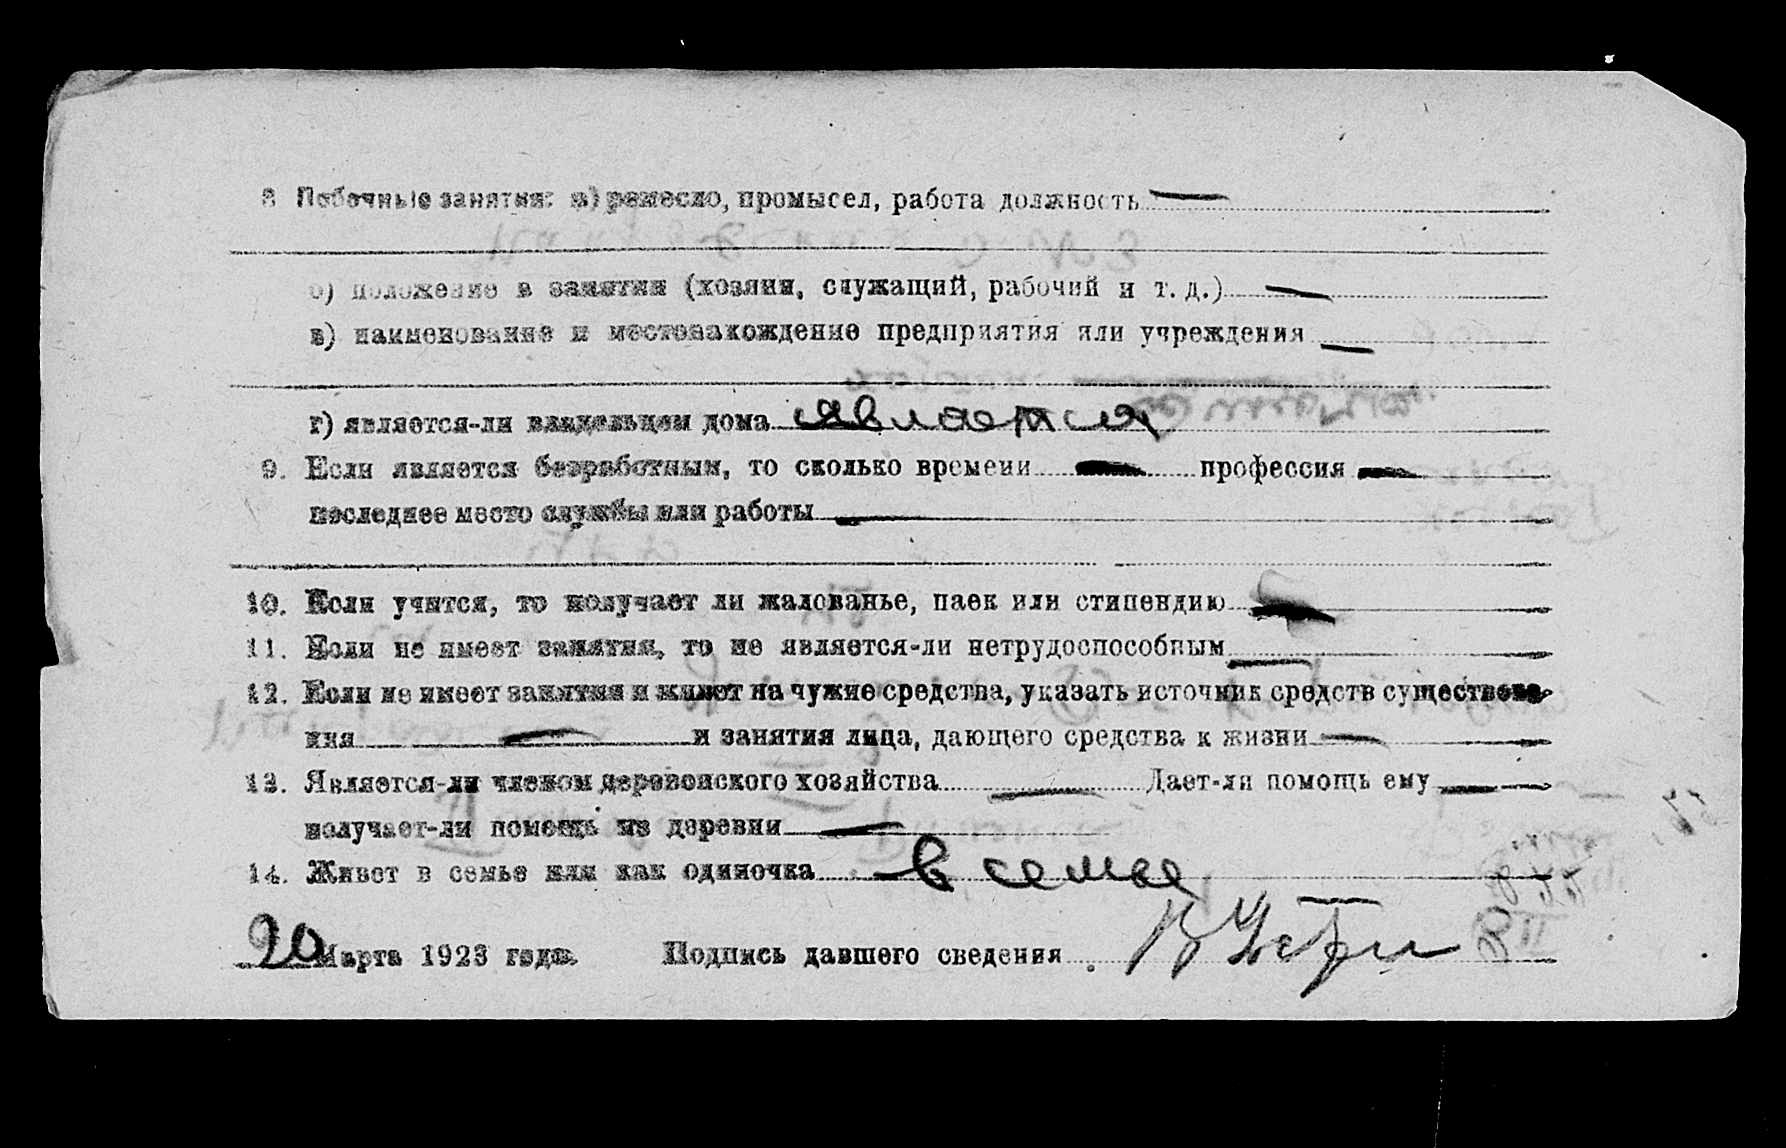 8 Побочные занятия: а) ремесло, промысел, работа должность —
б) положение в занятии (хозяин, служащий, рабочий и т. д.) —
в) наименование и местонахождение предприятия или учреждения —
г) является-ли владельцем дома является
9. Если является безработным, то сколько времени — профессия —
последнее место службы или работы —
10. Если учится, то получает ли жалованье, паек или стипендию —
11. Если не имеет занятия, то не является-ли нетрудоспособным —
12. Если не имеет занятия и живет на чужие средства, указать источник средств существова-
ния — и занятия лица, дающего средства к жизни —
13. Является-ли членом деревенского хозяйства — Дает-ли помощь ему —
получает-ли помощь из деревни —
14. Живет в семье или как одиночка в семье
20 Марта 1923 года. Подпись давшего сведения